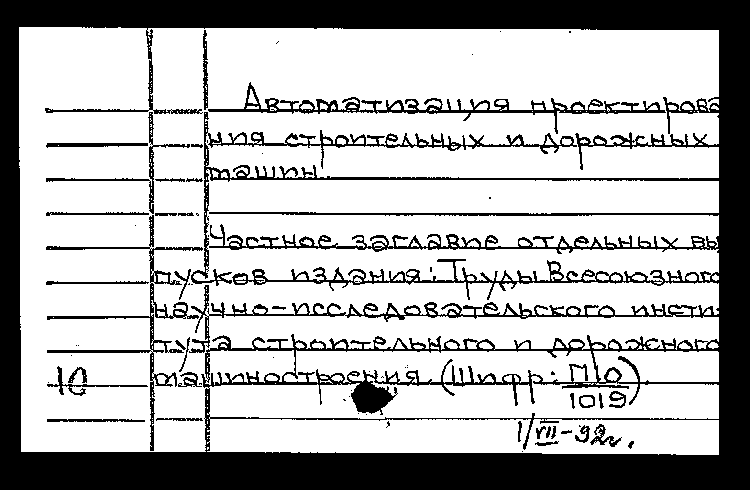 Автоматизация проектирова
ния строительных и дорожных
машин.
Частное заглавие отдельных вы
пусков издания: Труды Всесоюзного
научно-исследовательского инсти-
тута строительного и дорожного
10 машиностроения. (Шифр: П10
1019).
1/VII-92г.